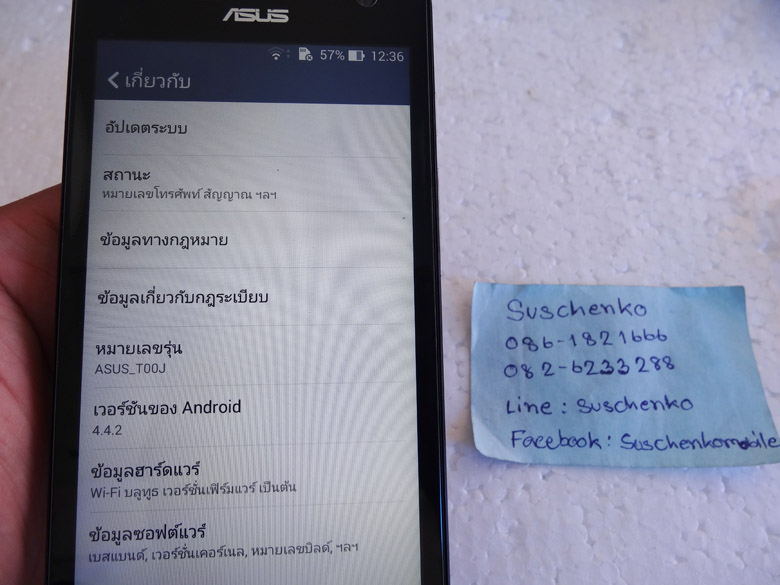 ASUS
57% 12:36
เกี่ยวกับ
อัปเดตระบบ
สถานะ
หมายเลขโทรศัพท์ สัญญาณ ฯลฯ
ข้อมูลทางกฎหมาย
ข้อมูลเกี่ยวกับกฎระเบียบ
หมายเลขรุ่น
ASUS_T00J
เวอร์ชันของ Android
4.4.2
ข้อมูลฮาร์ดแวร์
Wi-Fi บลูทูธ เวอร์ชั่นเฟิร์มแวร์ เป็นต้น
ข้อมูลซอฟต์แวร์
เบสแบนด์, เวอร์ชั่นเคอร์เนล, หมายเลขบิลด์, ฯลฯ
Suschenko
086-1821666
082-6233288
Line : Suschenko
Facebook : Suschenkomobile